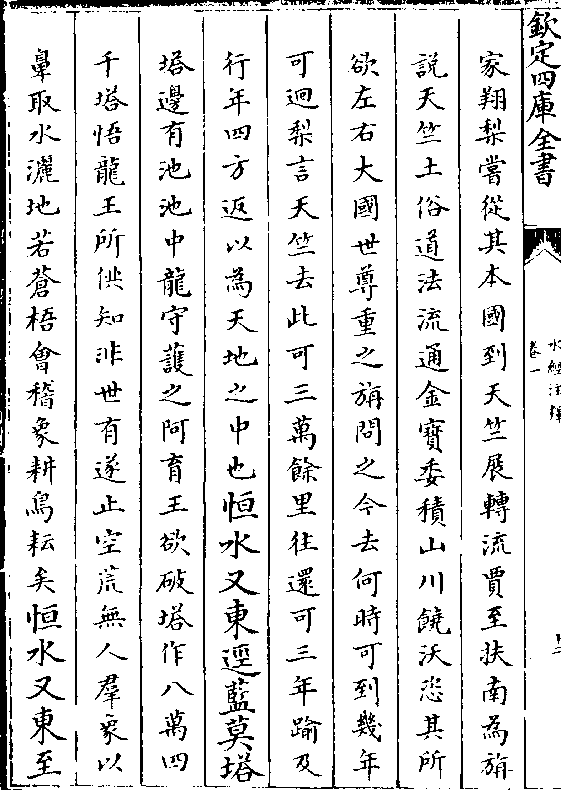 欽定四庫全書
水經注釋
卷一
家翔梨嘗從其本國到天竺展轉流賈至扶南為旃
說天竺土俗道法流通金寶委積山川饒沃恣其所
欲左右大國世尊重之旃問之今去何時可到幾年
可迴梨言天竺去此可三萬餘里往還可三年踰及
行年四方返以為天地之中也恒水又東逕藍莫塔
塔邊有池池中龍守護之阿育王欲破塔作八萬四
千塔悟龍王所供知非世有遂止空荒無人羣象以
鼻取水灑地若蒼梧會稽象耕鳥耘矣恒水又東至